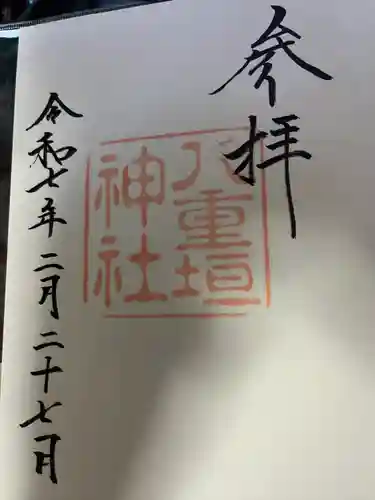 参拝
八重垣
神社
令和七年二月二十七月